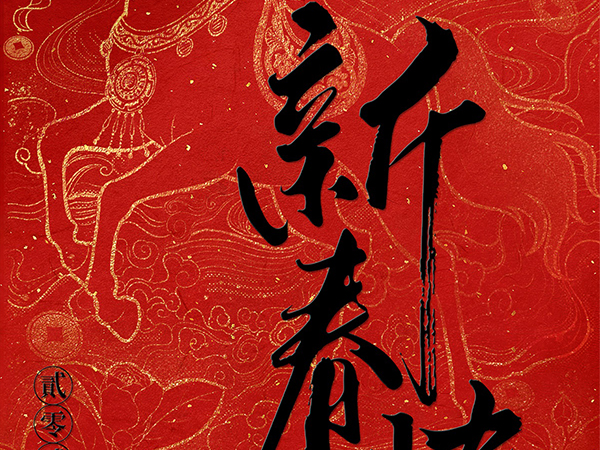 新春快
贰零